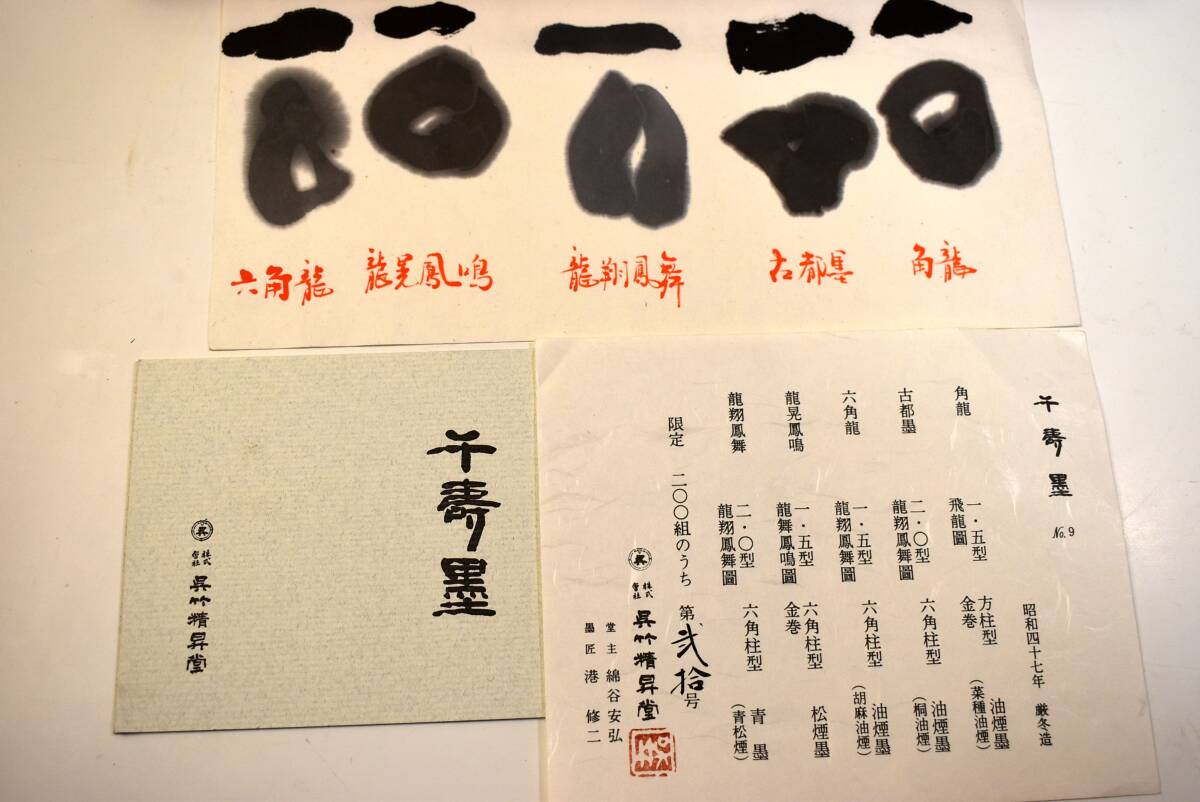 六角龍
龍晃鳳鳴
龍翔鳳舞
古都墨
角龍
千壽墨
呉
株式会社 呉竹精昇堂
千壽墨 No.9
昭和四十七年 厳冬造
角龍 一・五型 飛龍圖 方柱型 金巻 油煙墨 (菜種油煙)
古都墨 二・〇型 龍翔鳳舞圖 六角柱型 油煙墨 (桐油煙)
六角龍 一・五型 龍翔鳳舞圖 六角柱型 油煙墨 (胡麻油煙)
龍晃鳳鳴 一・五型 龍舞鳳鳴圖 六角柱型 金巻 松煙墨
龍翔鳳舞 二・〇型 龍翔鳳舞圖 六角柱型 青墨 (青松煙)
限定 二〇〇組のうち 第、弐拾号
呉 株式会社 呉竹精昇堂
堂主 綿谷安弘
墨匠 港 修二